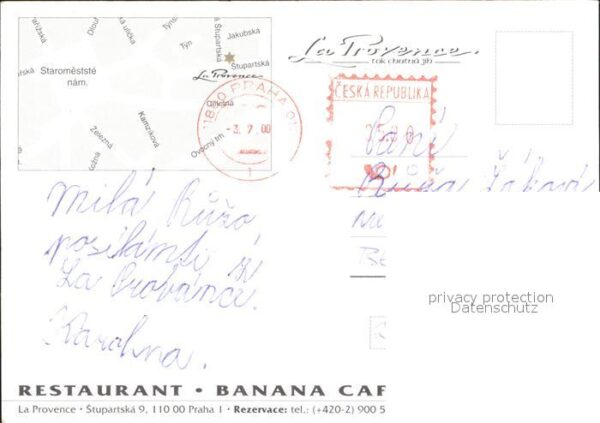 Pařížská
Dlouhá
Týn
Týnská ulička
Štupartská
Jakubská
Staroměstské
nám.
Štupartská
La Provence
Celetná
Železná
Kamzíkova
Ovocný trh
La Provence.
tak chutná jih
11800 PRAHA 011
-3. 7. 00
1
ČESKÁ REPUBLIKA
Paní
Růža Žáková
Milá Růžo
posílám ti
La Provance.
Karolina.
privacy protection
Datenschutz
RESTAURANT • BANANA CAF
La Provence • Štupartská 9, 110 00 Praha 1 • Rezervace: tel.: (+420-2) 900 5